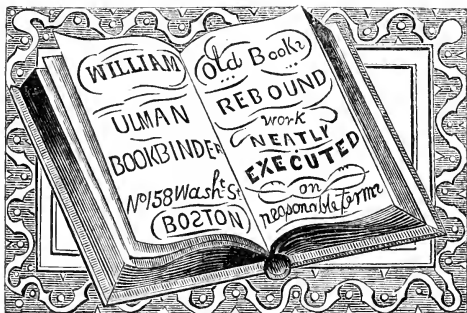 WILLIAM
ULMAN
BOOKBINDER
No 158 Washt. St.
BOSTON
Old Books
REBOUND
work
NEATLY
EXECUTED
on
reasonable terms